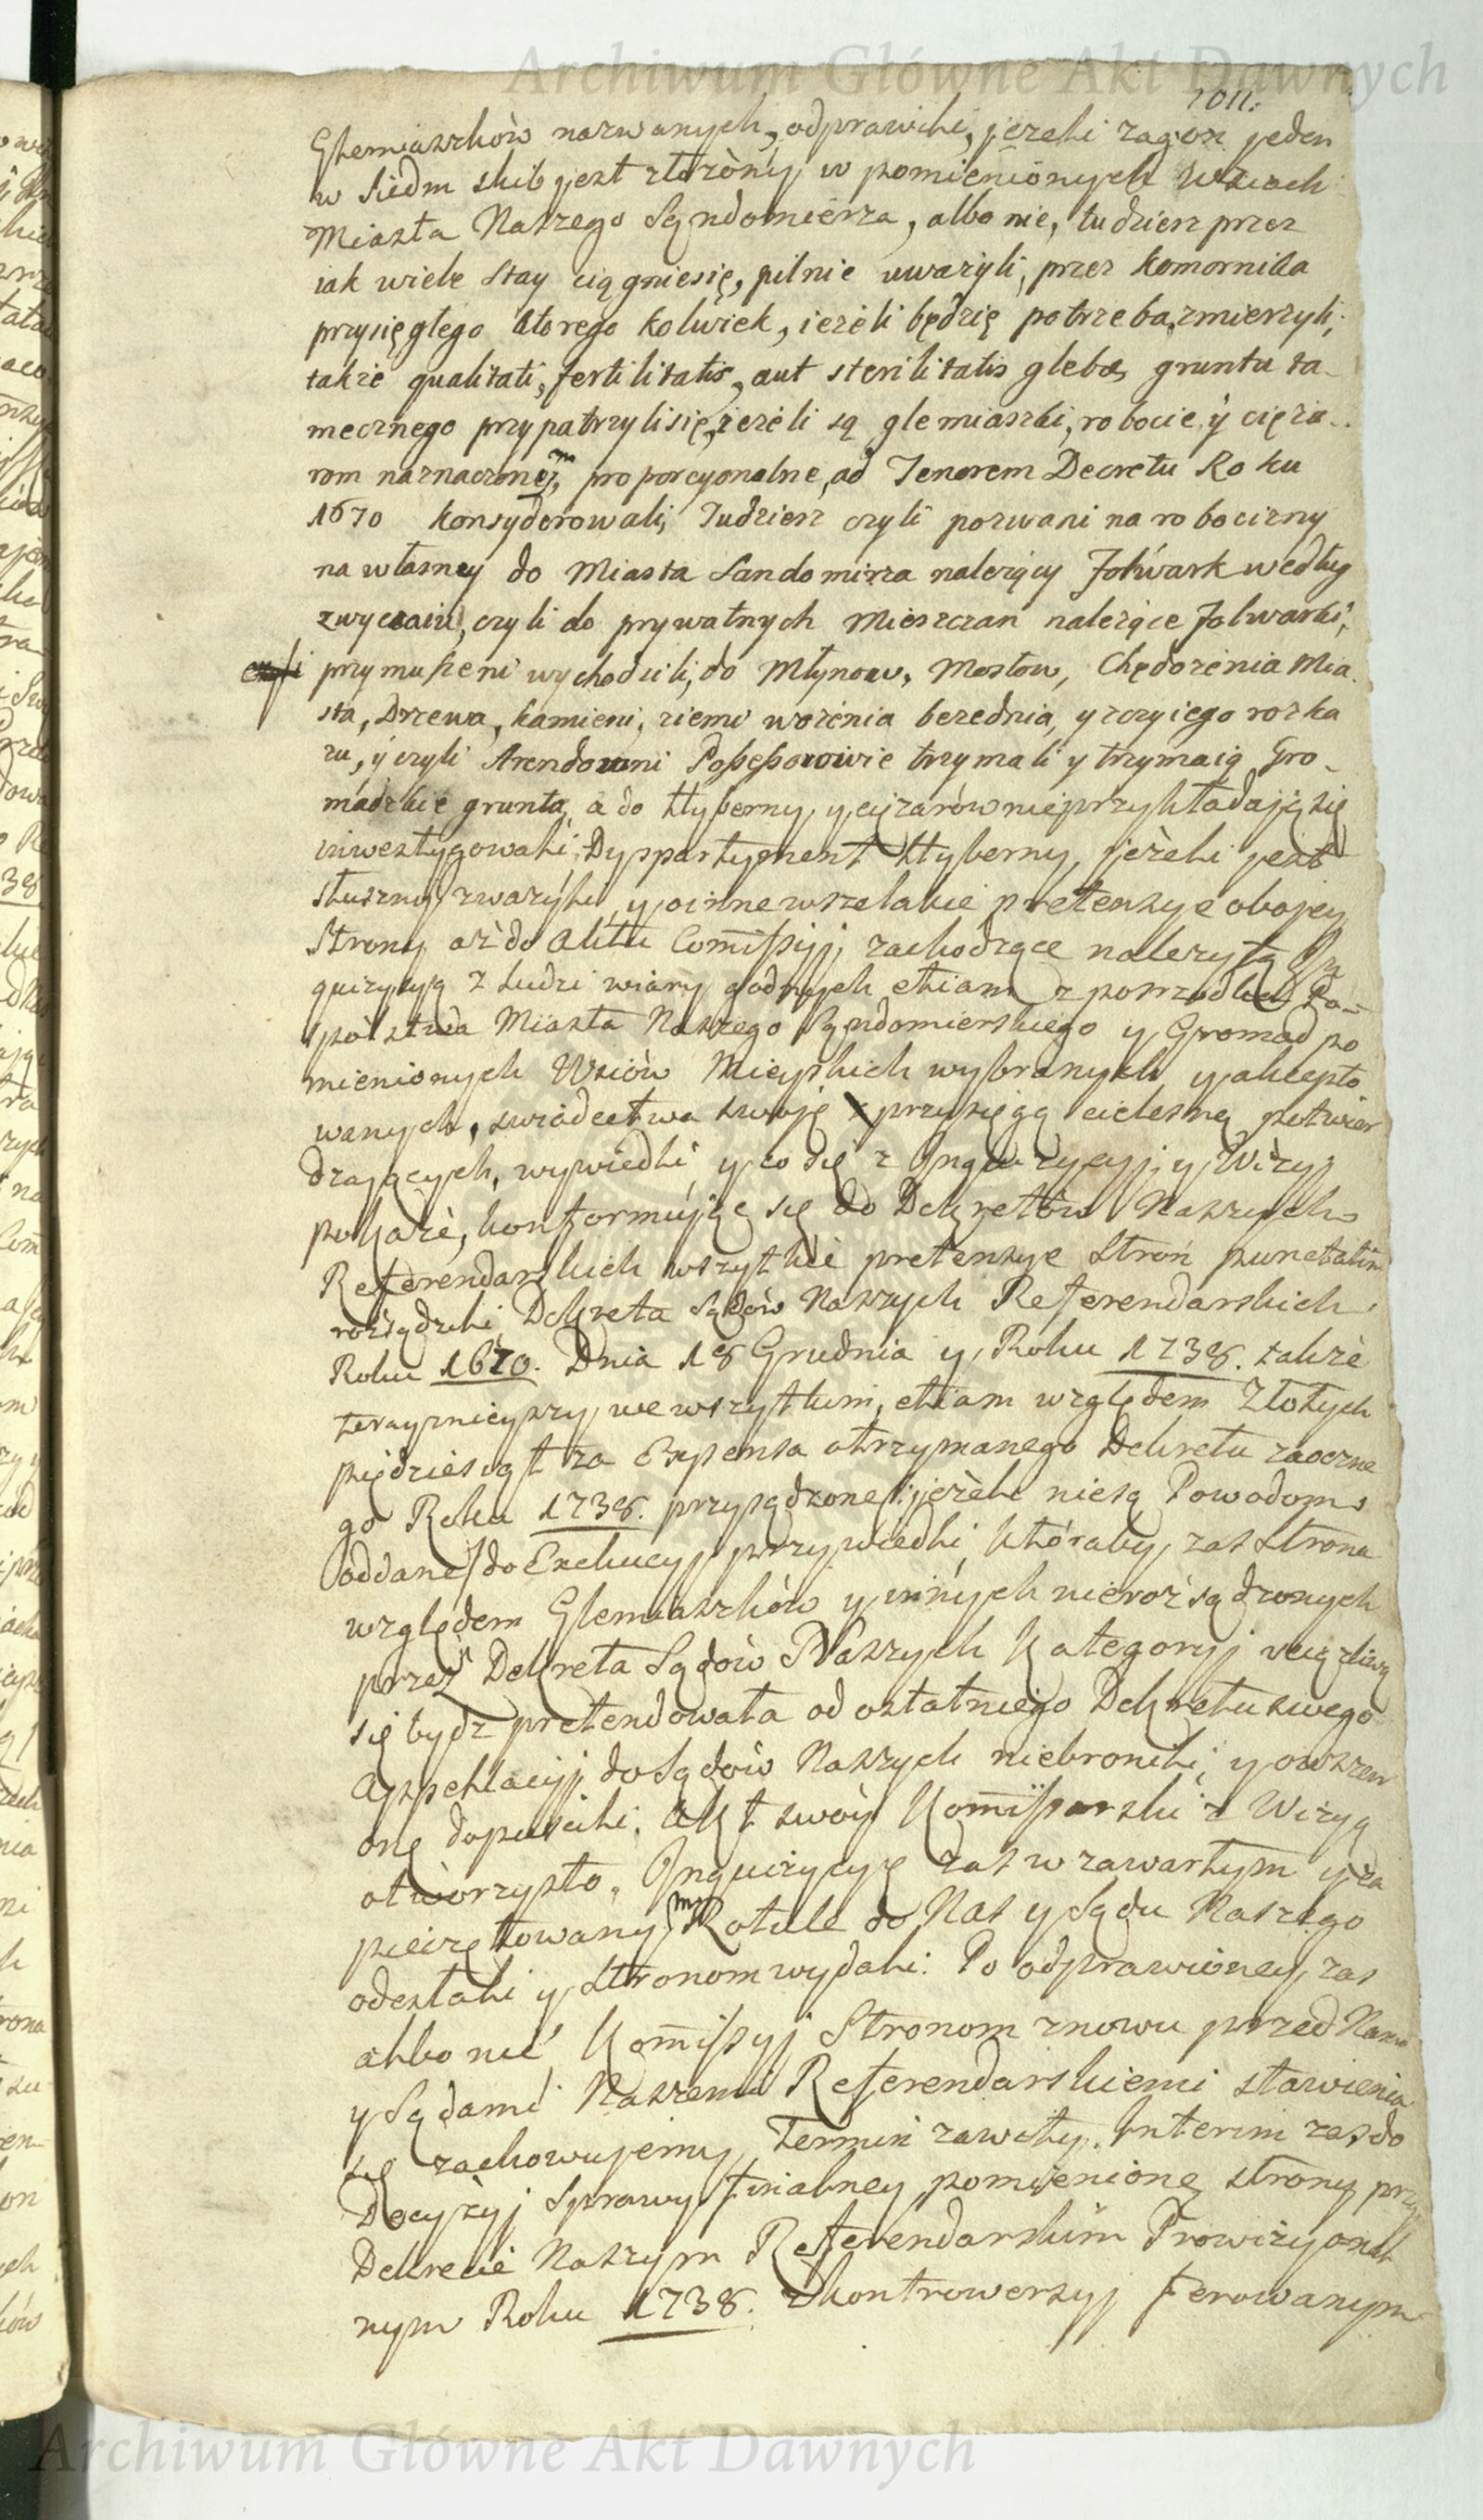 Archiwum Główne Akt Dawnych
1011.
Glemiaszków nazwanych, odprawili, jezeli zagon jeden
w siedm skib jest złożóny w pomienionych Wsiach
Miasta Naszego Sąndomierza, albo nie, tudziesz przez
iak wiele stay ciągniesię, pilnie uwazyli, przez komornika
przysięgłego ktorego kolwiek, iezeli będzię potrzeba, zmierzyli;
takze qualitati, fertilitatis, aut sterilitatis glebæ, gruntu ta-
mecznego przypatrzylisię, iezeli są glemiaszki, robocie y cięza-
rom naznaczonem, proporcyonalne, ad Tenorem Decretu Roku
1670 konsyderowali, Tudziesz czyli pozwani na robocizny
na własney do Miasta Sandomirza nalezący Folwark według
zwyczaiu, czyli do prywatnych Mieszczan nalezące Folwarki,
czyli przymuszeni wychodzili, do Młynow, Mostow, Chędozenia Mia
sta, Drzewa, kamieni, ziemi wozenia bezednia, y z czyiego rozka
zu, y czyli Arendowni Possessorowie trzymali y trzymaią Gro-
madzkie grunta, a do Hyberny, y cięzarów nieprzykładają się
inwestygowali, Dyspartyment Hyberny, jeżeli jest
słuszny zwazyli, y oinne wszelakie pretensye obojey
Strony aż do Aktu Comissyj, zachodzące nalezytą In
quizycyą z Ludzi wiary godnych etiam z posrzodku Po-
spólstwa Miasta Naszego Sąndomierskiego y Gromad po
mienionych Wsiów Mieyskich wybranych y akcepto
wanych, swiadectwa swoje przysięgą cielesną potwier
dzających, wywiedli, y co się z Inquizycyj, y Wizyj
pokaże, konformując się do Dekretów Naszych
Referendarskich wszytkié pretensye Stron punctatim
rozsądzili Dekreta Sądów Naszych Referendarskich
Roku 1670. Dnia 18 Grudnia y Roku 1738. takze
teraynieyszy we wszytkim, etiam względem Złotych
pięćdziesiąt za Expensa otrzymanego Dekretu zaoczne
go Roku 1738. przysądzone /: jeżeli niesą Powodom
oddane / do Exekucyj przywiedli, któraby zas Strona
względem Glemiaszków y innych nierozsądzonych
przez Dekreta Sądów Naszych Kategoryj uciązliwą
się bydz pretendowała od ostatniego Dekretu swego
Appellacyj do Sądów Naszych niebronili, y owszem
onę dopuscili. Akt swóy Komissarski z Wizyą
otworzysto, Inquizycyę zas w zawartym y za
pieczętowanym Rotule do Nas y Sądu Naszego
odesłali y Stronom wydali: Po odprawioney zas
albo nie Komissyj Stronom znowu przed Nami
y Sądami Naszemi Referendarskiemi stawienia
się zachowujemy Termin zawity. Interim zas do
Decyzyj Sprawy finalney pomienionę strony przy
Dekrecie Naszym Referendarskim Prowizyonal
nym Roku 1738. z kontrowersyj ferowanym
Archiwum Główne Akt Dawnych